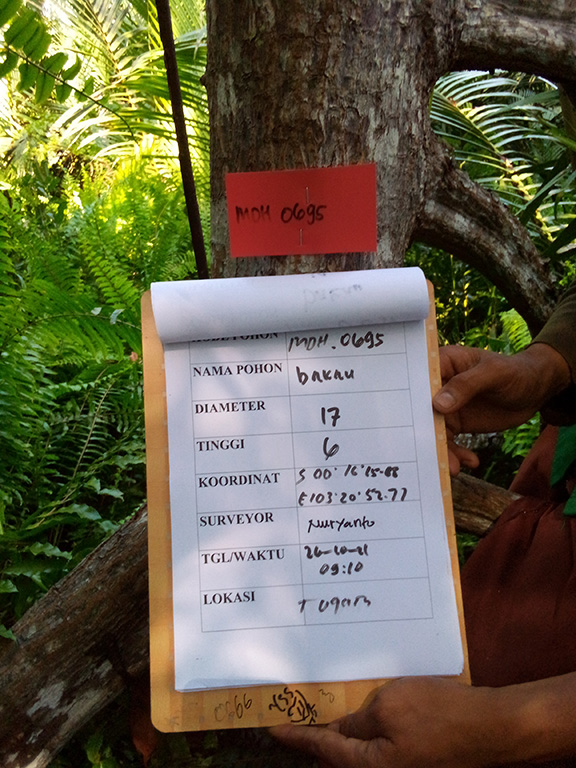 MDH 0695
KODE POHON MDH.0695
NAMA POHON bakau
DIAMETER 17
TINGGI 6
KOORDINAT S 00°16'15.88
E103°20'52.77
SURVEYOR Nuryanto
TGL/WAKTU 26-10-21
09:10
LOKASI
0666